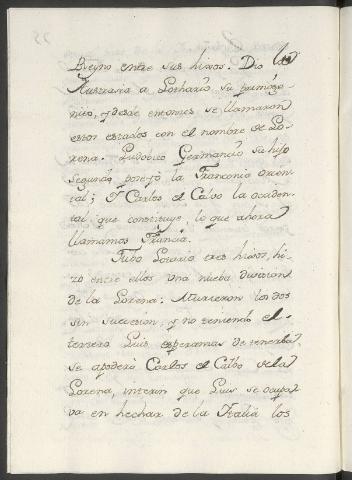 Reyno entre sus hixos. Dio la
Austrasia a Lothario, su primoge-
nito, y desde entonces se llamaron
estos estados con el nombre de Lo-
rena. Ludovico Germanico su hijo
segundo poseyó la Franconia orien-
tal; Y Carlos el Calvo la occiden-
tal que constituye lo que ahora
llamamos Francia.
Tubo Lotario tres hixos, hi-
zo entre ellos una nueba division
de la Lorena: Murieron los dos
sin sucesion, y no teniendo el
tercero Luis esperanzas de tenerla,
se apoderó Carlos el Calbo de la
Lorena, interin que Luis se ocupa-
va en hechar de la Italia los